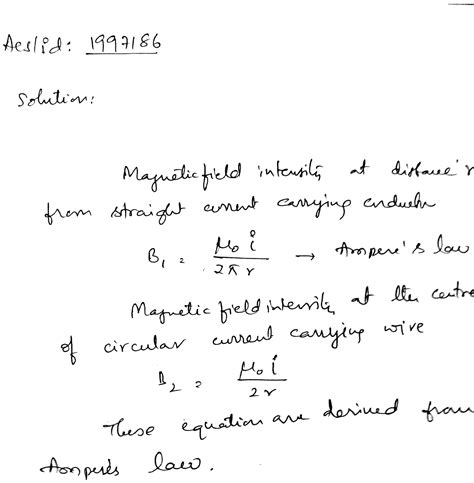 Aes/id: 1997186
Solution:
Magnetic field intensity at distance r
from straight current carrying conductor
B₁ = μ₀ i / 2πr → Ampere's law
Magnetic field intensity at the centre
of circular current carrying wire
B₂ = μ₀ i / 2r
These equation are derived from
Ampere's law.